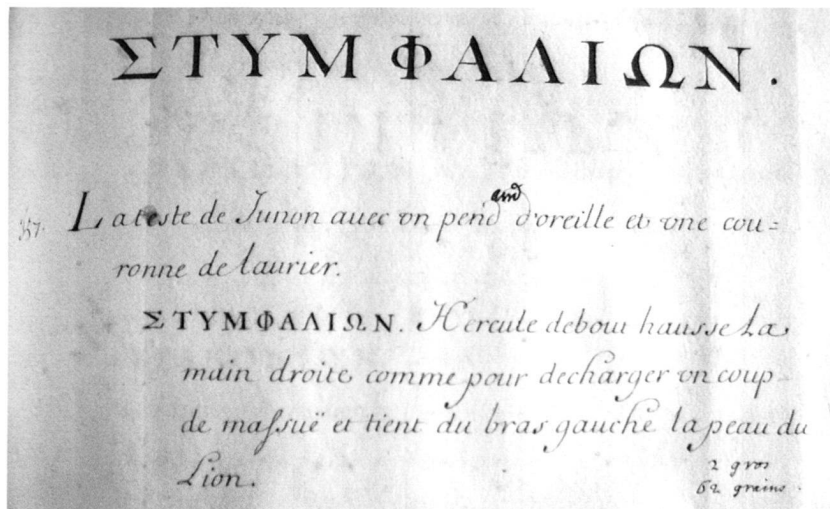 ΣΤΥΜΦΑΛΙΩΝ.
357. La teste de Junon auec vn pend and d'oreille et vne cou=
ronne de laurier.
ΣΤΥΜΦΑΛΙΩΝ. Hercule debout hausse la
main droite comme pour decharger vn coup
de massuë et tient du bras gauche la peau du
Lion.
2 gros
62 grains.